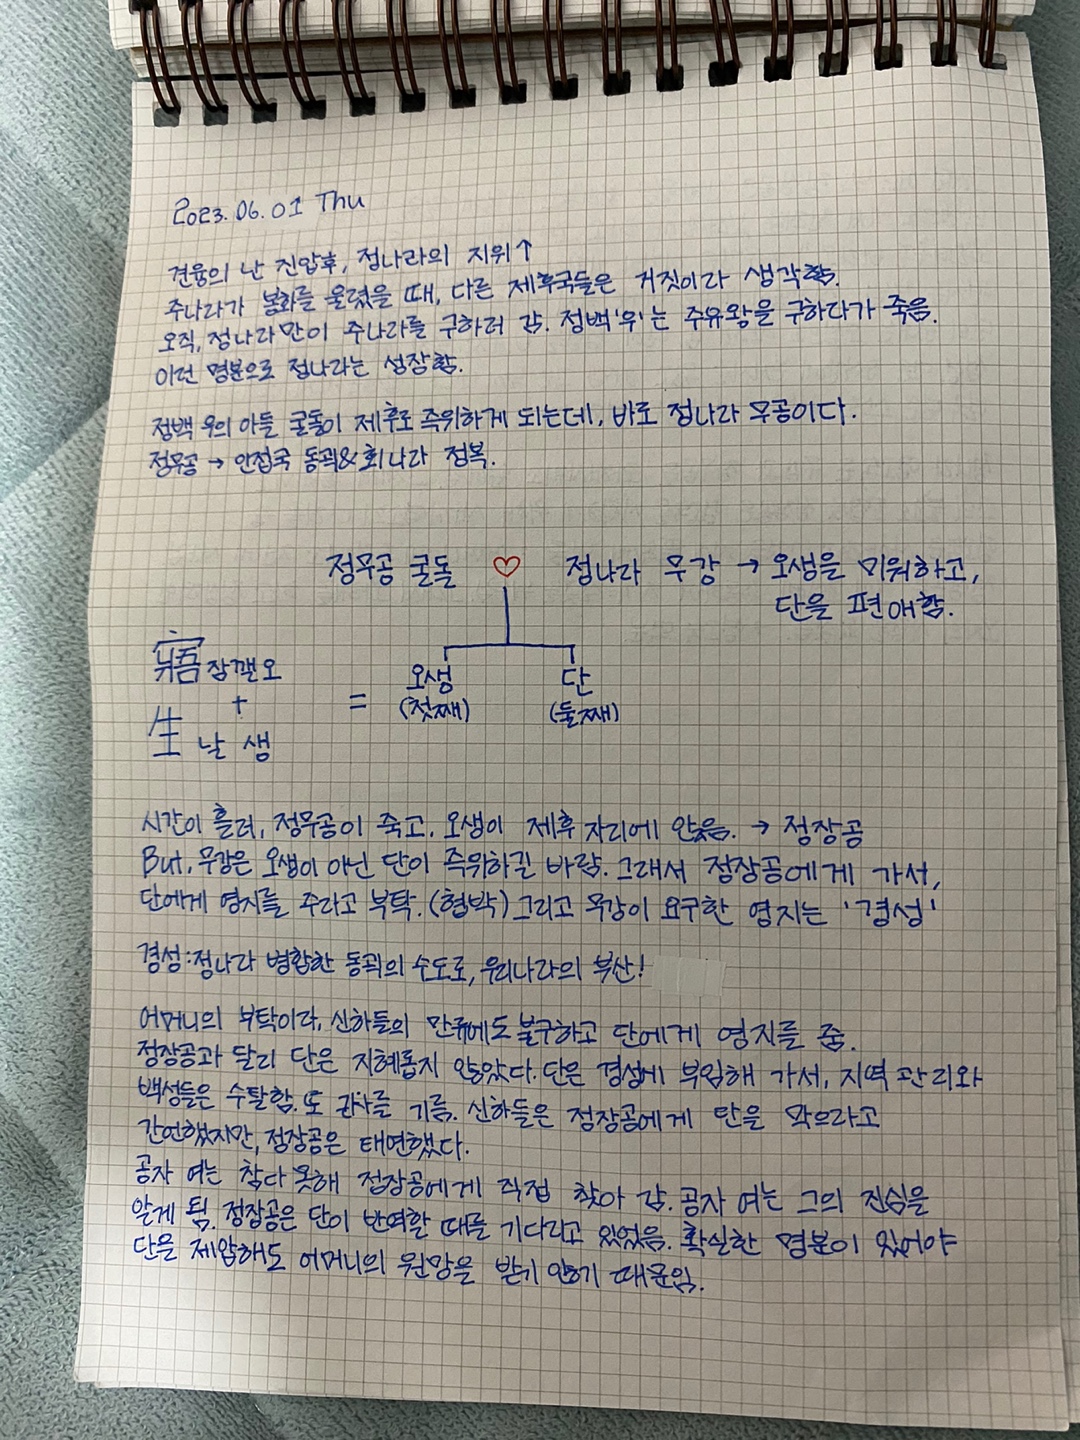 2023.06.01 Thu
견융의 난 진압후, 정나라의 지위↑
주나라가 봉화를 올렸을 때, 다른 제후국들은 거짓이라 생각함.
오직, 정나라만이 주나라를 구하러 감. 정백'우'는 주유왕을 구하다가 죽음.
이런 명분으로 정나라는 성장함.
정백 우의 아들 굴돌이 제후로 즉위하게 되는데, 바로 정나라 무공이다.
정무공 → 인접국 동괵&회나라 정복.
정무공 굴돌 ♡ 정나라 무강 → 오생을 미워하고,
단을 편애함.
寤 잠깰 오
+
生 날 생
=
오생 단
(첫째) (둘째)
시간이 흘러, 정무공이 죽고. 오생이 제후 자리에 앉음. → 정장공
But, 무강은 오생이 아닌 단이 즉위하길 바람. 그래서 정장공에게 가서,
단에게 영지를 주라고 부탁.(협박) 그리고 무강이 요구한 영지는 '경성'
경성:정나라 병합한 동괵의 수도로, 우리나라의 부산!
어머니의 부탁이라, 신하들의 만류에도 불구하고 단에게 영지를 줌.
정장공과 달리 단은 지혜롭지 않았다. 단은 경성에 부임해 가서, 지역 관리와
백성들은 수탈함. 또 군사를 기름. 신하들은 정장공에게 단을 막으라고
간언했지만, 정장공은 태연했다.
공자 여는 참다 못해 정장공에게 직접 찾아 감. 공자 여는 그의 진심을
알게 됨. 정장공은 단이 반역할 때를 기다리고 있었음. 확실한 명분이 있어야
단을 제압해도 어머니의 원망을 받기 않기 때문임.